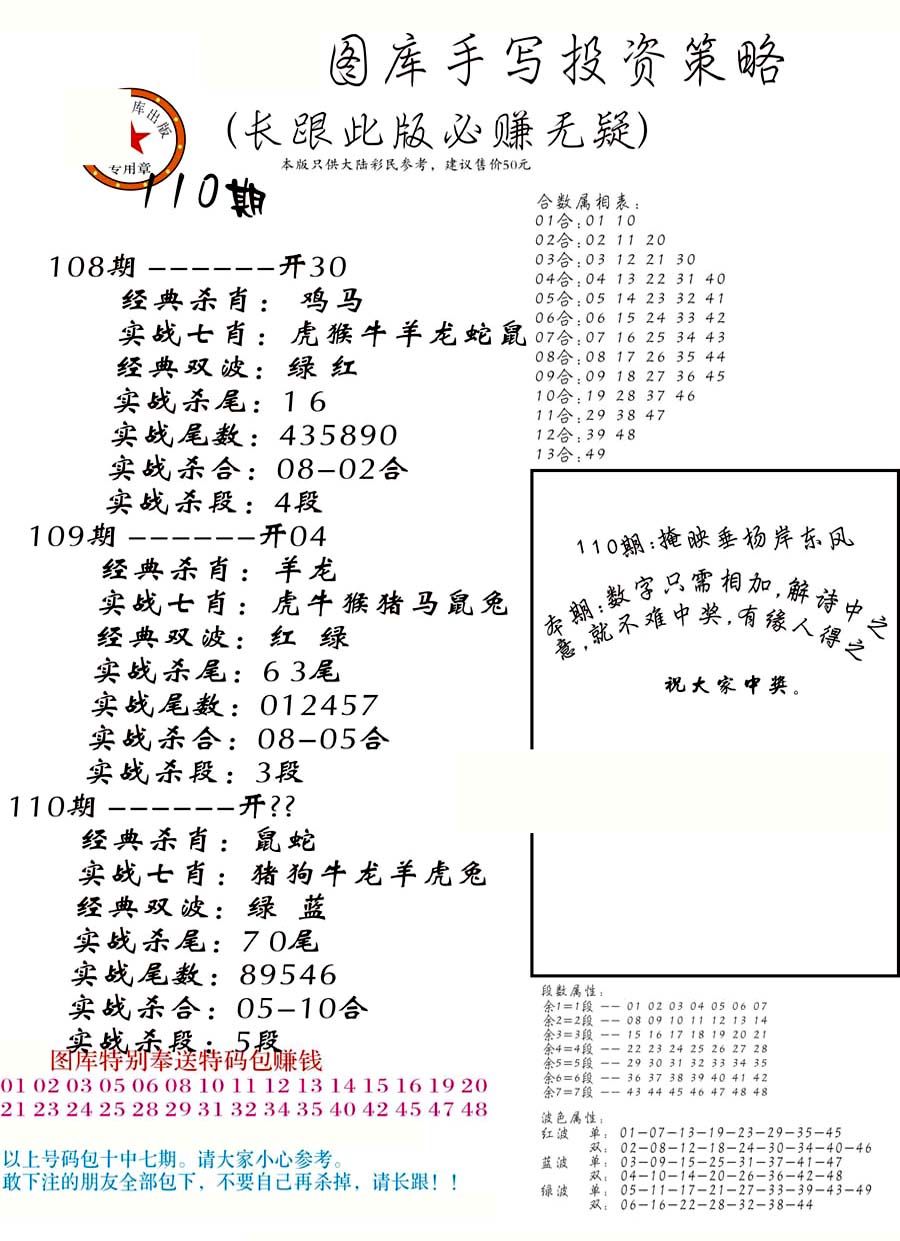 图库手写投资策略
(长跟此版必赚无疑)
本版只供大陆彩民参考，建议售价50元
库出版
专用章
110期
108期 ------开30
经典杀肖： 鸡马
实战七肖：虎猴牛羊龙蛇鼠
经典双波：绿 红
实战杀尾：1 6
实战尾数：435890
实战杀合：08-02合
实战杀段：4段
109期 ------开04
经典杀肖：羊龙
实战七肖：虎牛猴猪马鼠兔
经典双波：红 绿
实战杀尾：6 3尾
实战尾数：012457
实战杀合：08-05合
实战杀段：3段
110期 ------开??
经典杀肖：鼠蛇
实战七肖：猪狗牛龙羊虎兔
经典双波：绿 蓝
实战杀尾：7 0尾
实战尾数：89546
实战杀合：05-10合
实战杀段：5段
图库特别奉送特码包赚钱
01 02 03 05 06 08 10 11 12 13 14 15 16 19 20
21 23 24 25 28 29 31 32 33 34 35 40 42 45 47 48
以上号码包十中七期。请大家小心参考。
敢下注的朋友全部包下，不要自己再杀掉，请长跟！！
合数属相表：
01合：01 10
02合：02 11 20
03合：03 12 21 30
04合：04 13 22 31 40
05合：05 14 23 32 41
06合：06 15 24 33 42
07合：07 16 25 34 43
08合：08 17 26 35 44
09合：09 18 27 36 45
10合：19 28 37 46
11合：29 38 47
12合：39 48
13合：49
110期：掩映垂杨岸东风
本期：数字只需相加，解诗中之
意，就不难中奖，有缘人得之
祝大家中奖。
段数属性：
余1=1段 -- 01 02 03 04 05 06 07
余2=2段 -- 08 09 10 11 12 13 14
余3=3段 -- 15 16 17 18 19 20 21
余4=4段 -- 22 23 24 25 26 27 28
余5=5段 -- 29 30 31 32 33 34 35
余6=6段 -- 36 37 38 39 40 41 42
余7=7段 -- 43 44 45 46 47 48 48
波色属性：
红波 单：01-07-13-19-23-29-35-45
双：02-08-12-18-24-30-34-40-46
蓝波 单：03-09-15-25-31-37-41-47
双：04-10-14-20-26-36-42-48
绿波 单：05-11-17-21-27-33-39-43-49
双：06-16-22-28-32-38-44